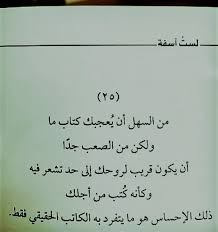 لستُ آسفة
(٢٥)
من السهل أن يُعجبك كتاب ما
ولكن من الصعب جدًا
أن يكون قريب لروحك إلى حد تشعر فيه
وكأنه كُتب من أجلك
ذلك الإحساس هو ما يتفرد به الكاتب الحقيقي فقط.